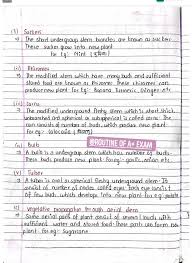 (i) Suckers
→ The short underground stem branches are known as sucker
These sucker grow into new plant
For eg: Mint
(ii) Rhizomes
→ The modified stem which have many buds and sufficient
stored food are known as Rhizome. These rhizomes can
produce new plant for eg: Banana, turmeric, Ginger etc
(iii) Corms
→ The modified underground fleshy stem which is short thick,
unbranched and spherical or subspherical is called corm. The
corm consists of number of buds, which produce new plant:
for eg: colocasia
(iv) Bulb
ROUTINE OF A+ EXAM
→ A bulb is a underground stem which has number of buds.
These buds produce new plant. For eg: garlic, onion etc.
(v) Tuber
→ A tuber is oval or spherical fleshy underground stem. It
consist of number of nodes called eyes. Each eye consist
of few buds, which develops into new plant for eg: potato
vegetative propagation through aerial stem
→ Some aerial parts of plant consist of several buds with
sufficient water and stored food. These parts can form new
plant. For eg: Sugarcane